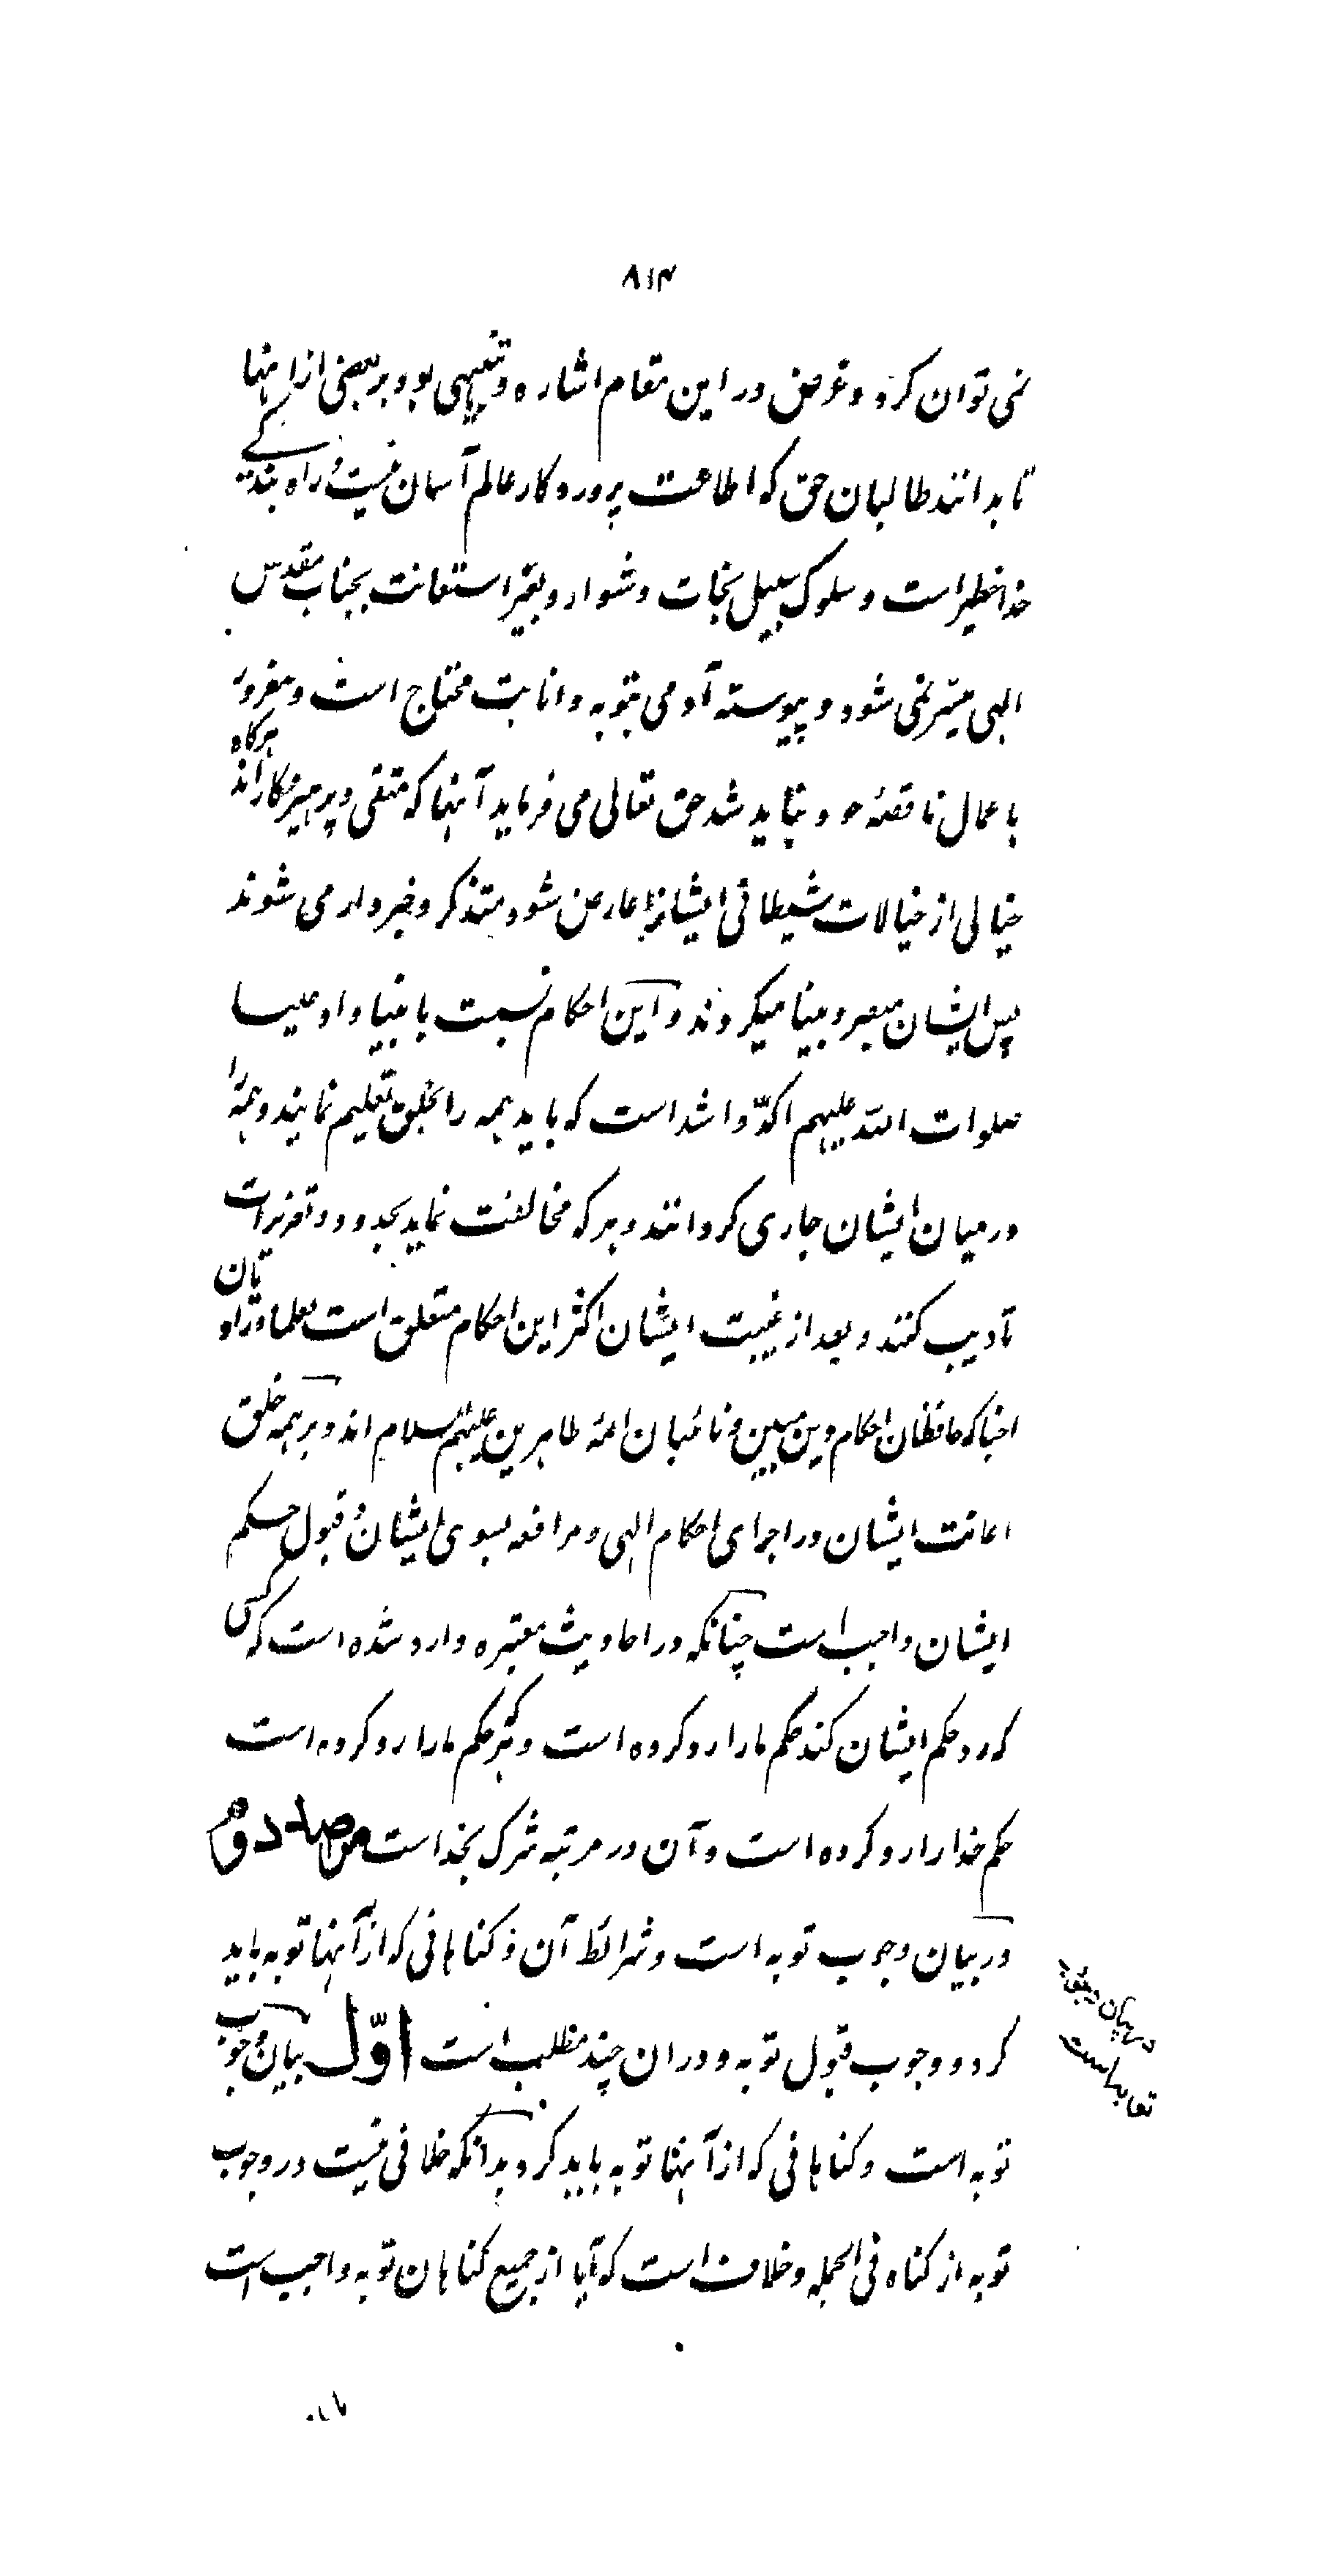 ۸۱۴
نمی توان کرد و غرض در این مقام اشاره و تنبیهی بود بر بعضی از اینها
تا بدانند طالبان حق که اطاعت پروردکار عالم آسان نیست و راه بندکی
خدا خطیر است و سلوک سبیل نجات دشوار و بغیر استعانت بجناب مقدس
الهی میسّر نمی شود و پیوسته آدمی بتوبه و انابت محتاج است و مغرور
باعمال ناقصهٔ خود نباید شد حق تعالی می فرماید آنها که متقی و پرهیزکارند هرکاه
خیالی از خیالات شیطانی ایشانرا عارض شود متذکر و خبردار می شوند
پس ایشان مبصر و بینا میکردند و این احکام نسبت بانبیا و اوصیا
صلوات الله علیهم اکدّ و اشد است که باید همه را بخلق تعلیم نمایند و همه را
در میان ایشان جاری کردانند و هر که مخالفت نماید بحدود و تعزیرات
تادیب کنند و بعد از غیبت ایشان اکثر این احکام متعلق است بعلما و راویان
اخبار که حافظان احکام دین مبین و نائبان ائمهٔ طاهرین علیهم السلام اند و بر همه خلق
اعانت ایشان در اجرای احکام الهی و مرافعه بسوی ایشان و قبول حکم
ایشان واجب است چنانکه در احادیث معتبره وارد شده است که کسی
که رد حکم ایشان کند حکم ما را رد کرده است و هر که حکم ما را رد کرده است
حکم خدا را رد کرده است و آن در مرتبه شرک بخداست
در بیان وجوب توبه است و شرائط آن و کناهانی که از آنها توبه باید
کرد و وجوب قبول توبه و در ان چند مطلب است اوّل بیان وجوب
توبه است و کناهانی که از آنها توبه باید کرد بدانکه خلافی نیست در وجوب
توبه از کناه فی الجمله و خلاف است که آیا از جمیع کناهان توبه واجب است